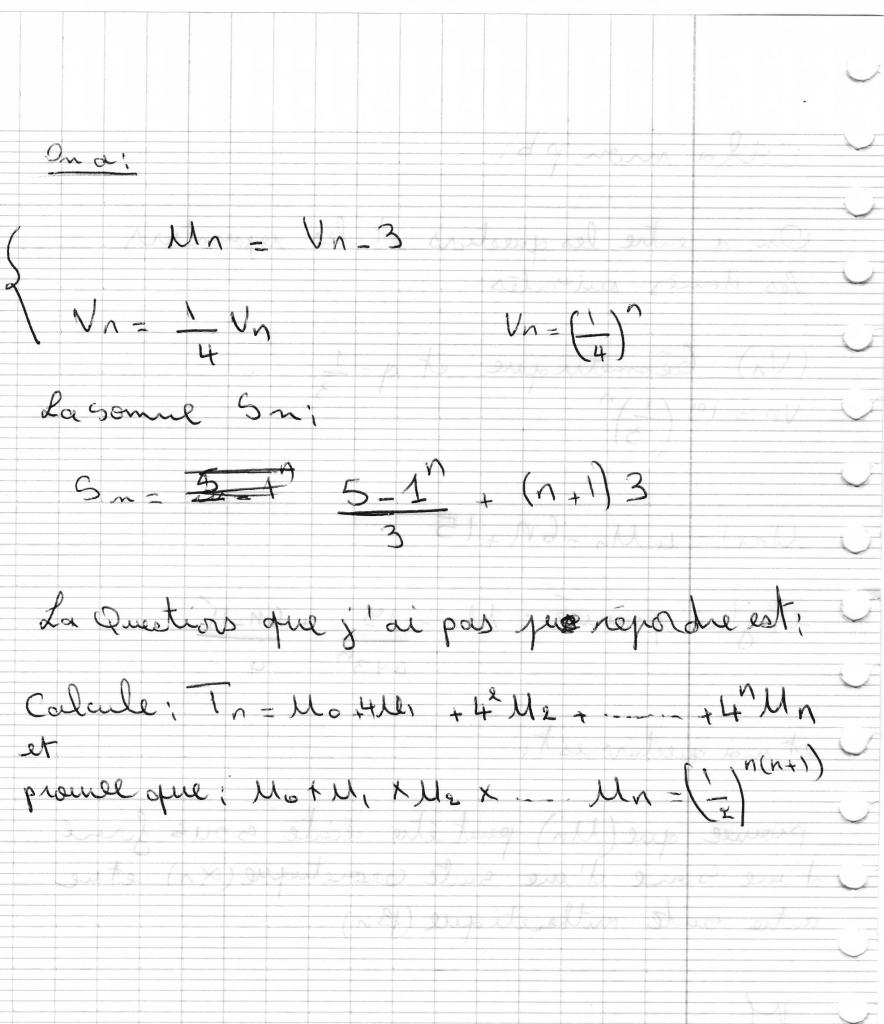 On a :
Un = Vn - 3
Vn = 1/4 Vn Vn = (1/4)^n
La somme Sn ;
Sn = (5 - 1^n)/3 + (n+1) 3
La Questions que j'ai pas pue répordre est ;
Calcule ; Tn = U0 + 4U1 + 4^2 U2 + ...... + 4^n Un
et
prouve que ; U0 * U1 × U2 × .... Un = (1/2)^n(n+1)